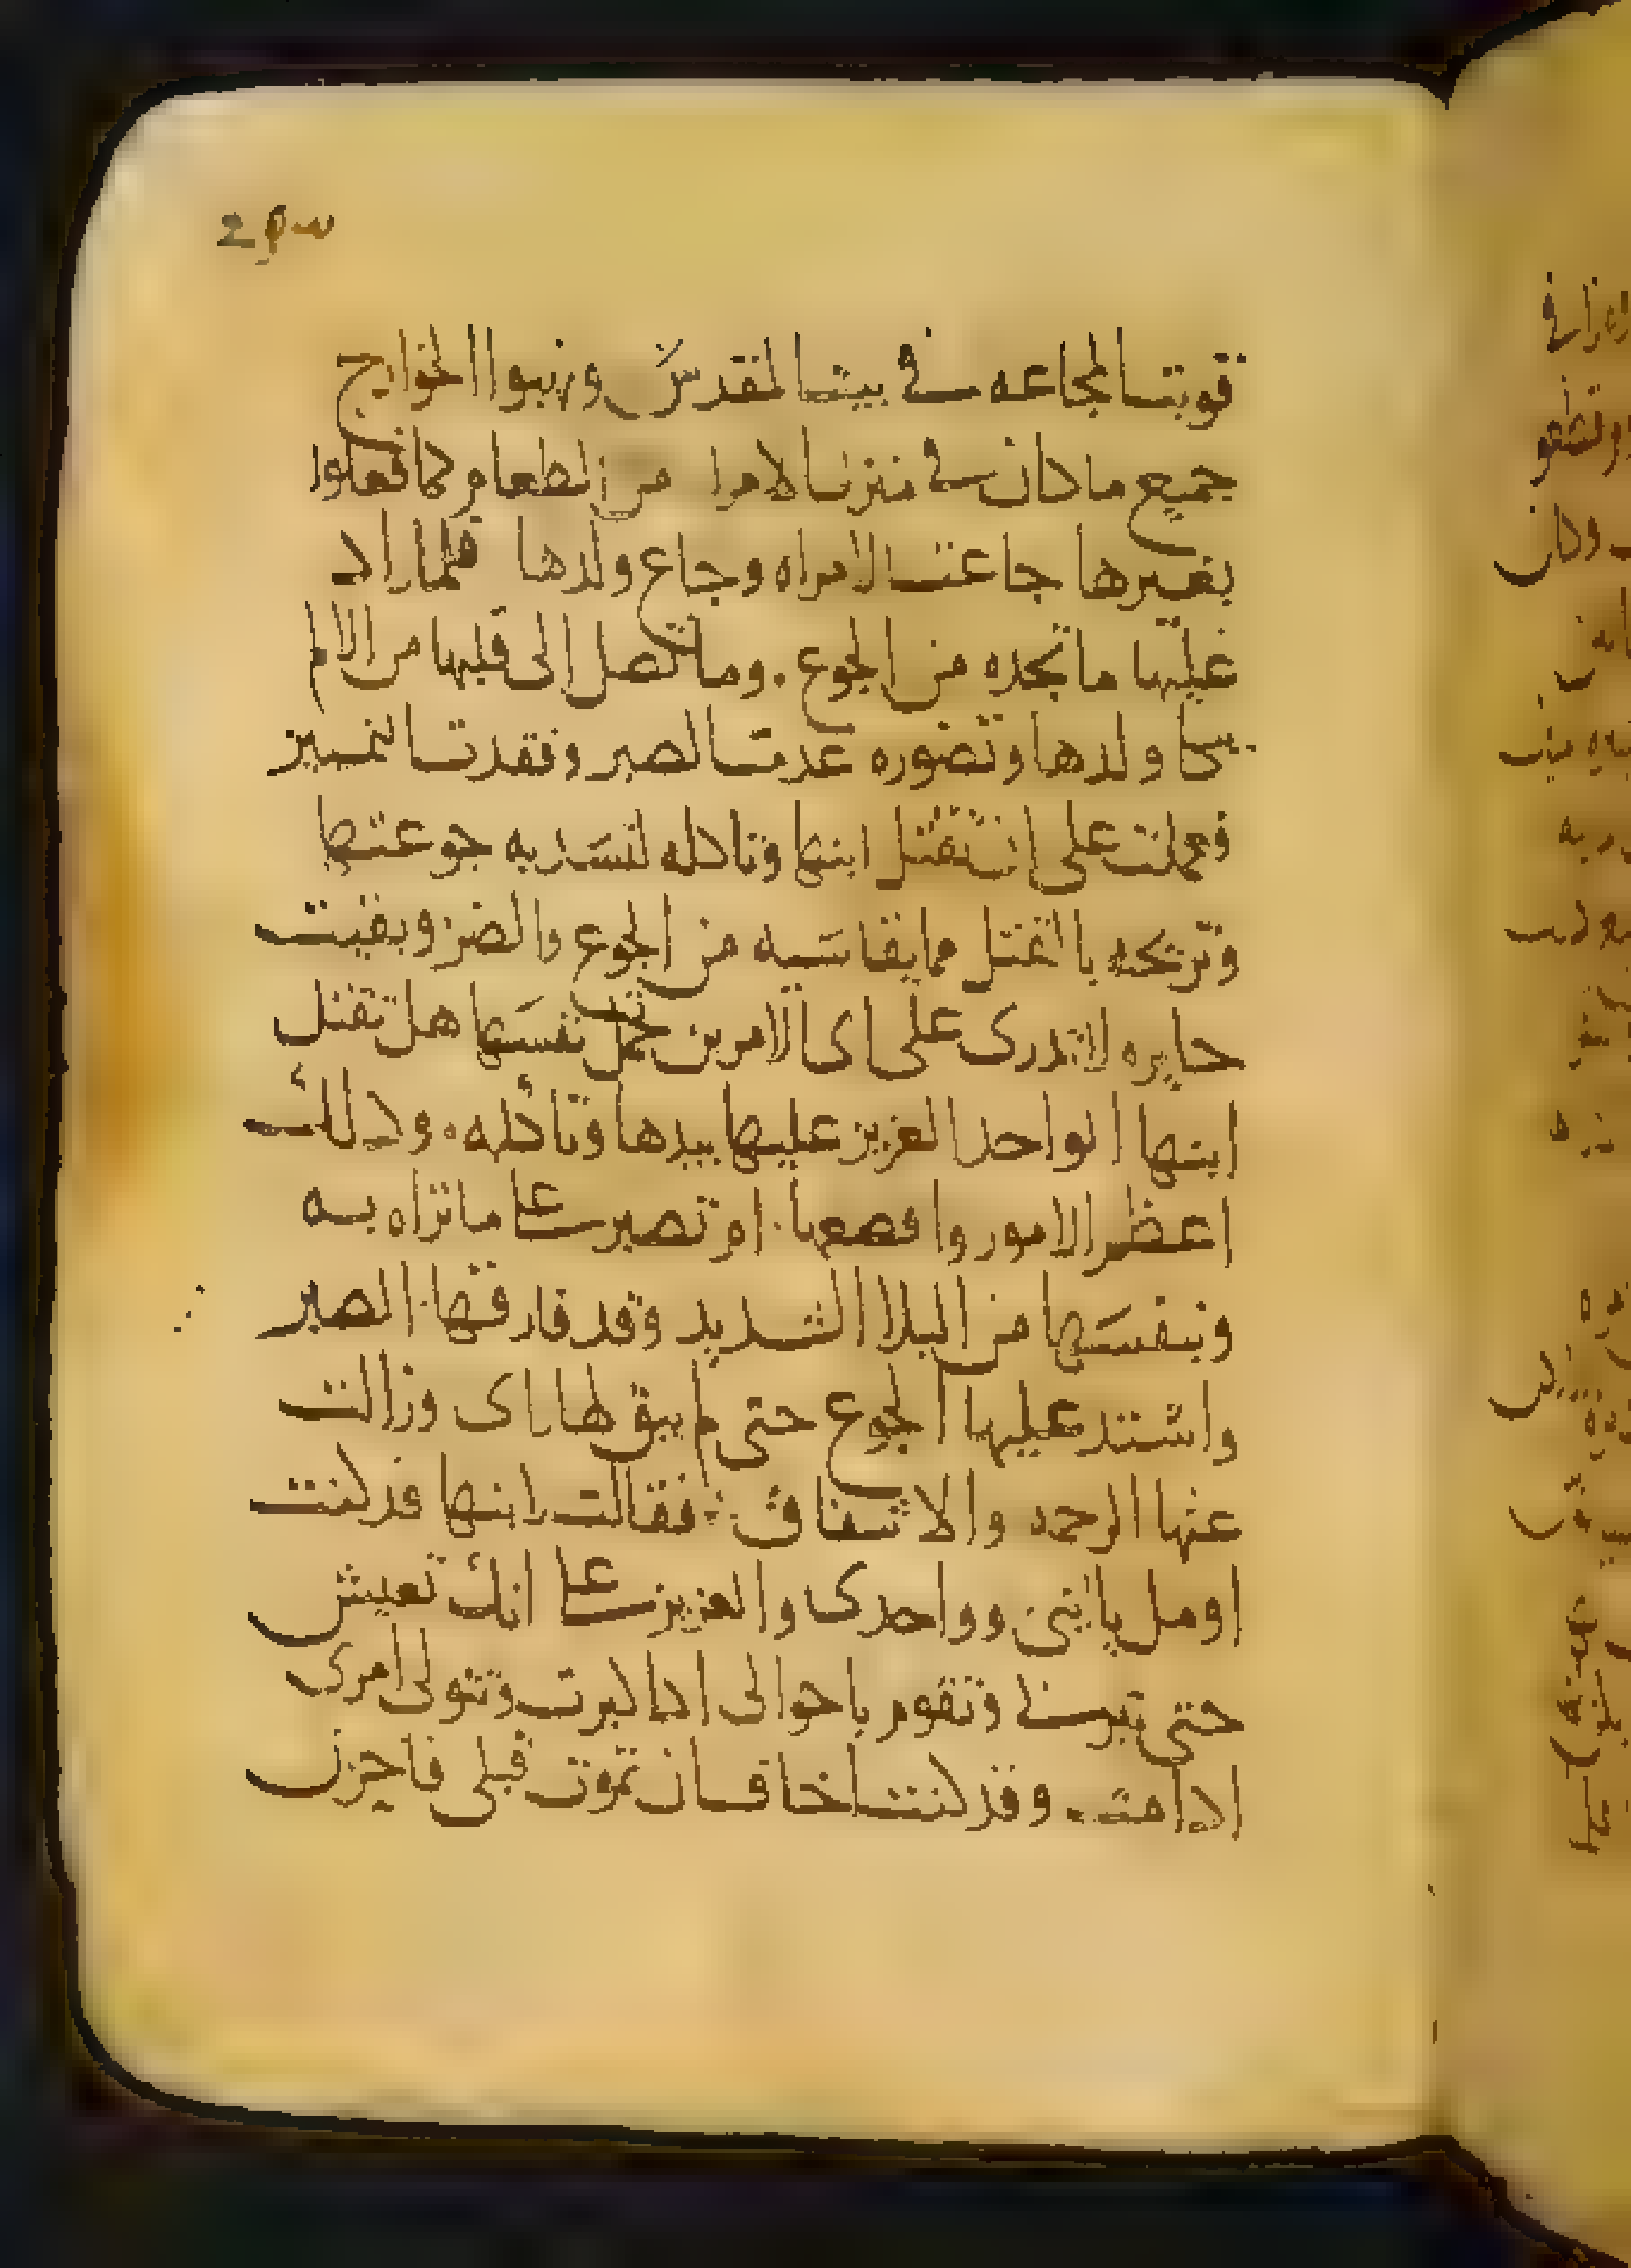 قويت المجاعه في بيت المقدس ونهبوا الخوارج
جميع ما كان في منزل الامراه من الطعام كما فعلوا
بغيرها جاعت الامراه وجاع ولدها فلما زاد
عليها ما تجده من الجوع . وما تصل الى قلبها من الالم
ببكا ولدها وتضوره عدمت الصبر وفقدت التمييز
فعملت على ان تقتل ابنها وتاكله لتسد به جوعتها
وتريحه بالقتل مما يقاسيه من الجوع والضر وبقيت
حايره لا تدري على اى الامرين تحمل نفسها هل تقتل
ابنها الواحد العزيز عليها بيدها وتاكله . وذلك
اعظم الامور وافصعها . ام تصبر على ما تراه به
وبنفسها من البلا الشديد وقد فارقها الصبر
واشتد عليها الجوع حتى لم يبق لها راى وزالت
عنها الرحمه والاشفاق . فقالت لابنها قد كنت
اومل يا ابنى وواحدى والعزيز على انك تعيش
حتى تبرنى وتقوم باحوالى اذا كبرت وتتولى امرى
اذا مت . وقد كنت اخاف ان تموت قبلى فاحزن